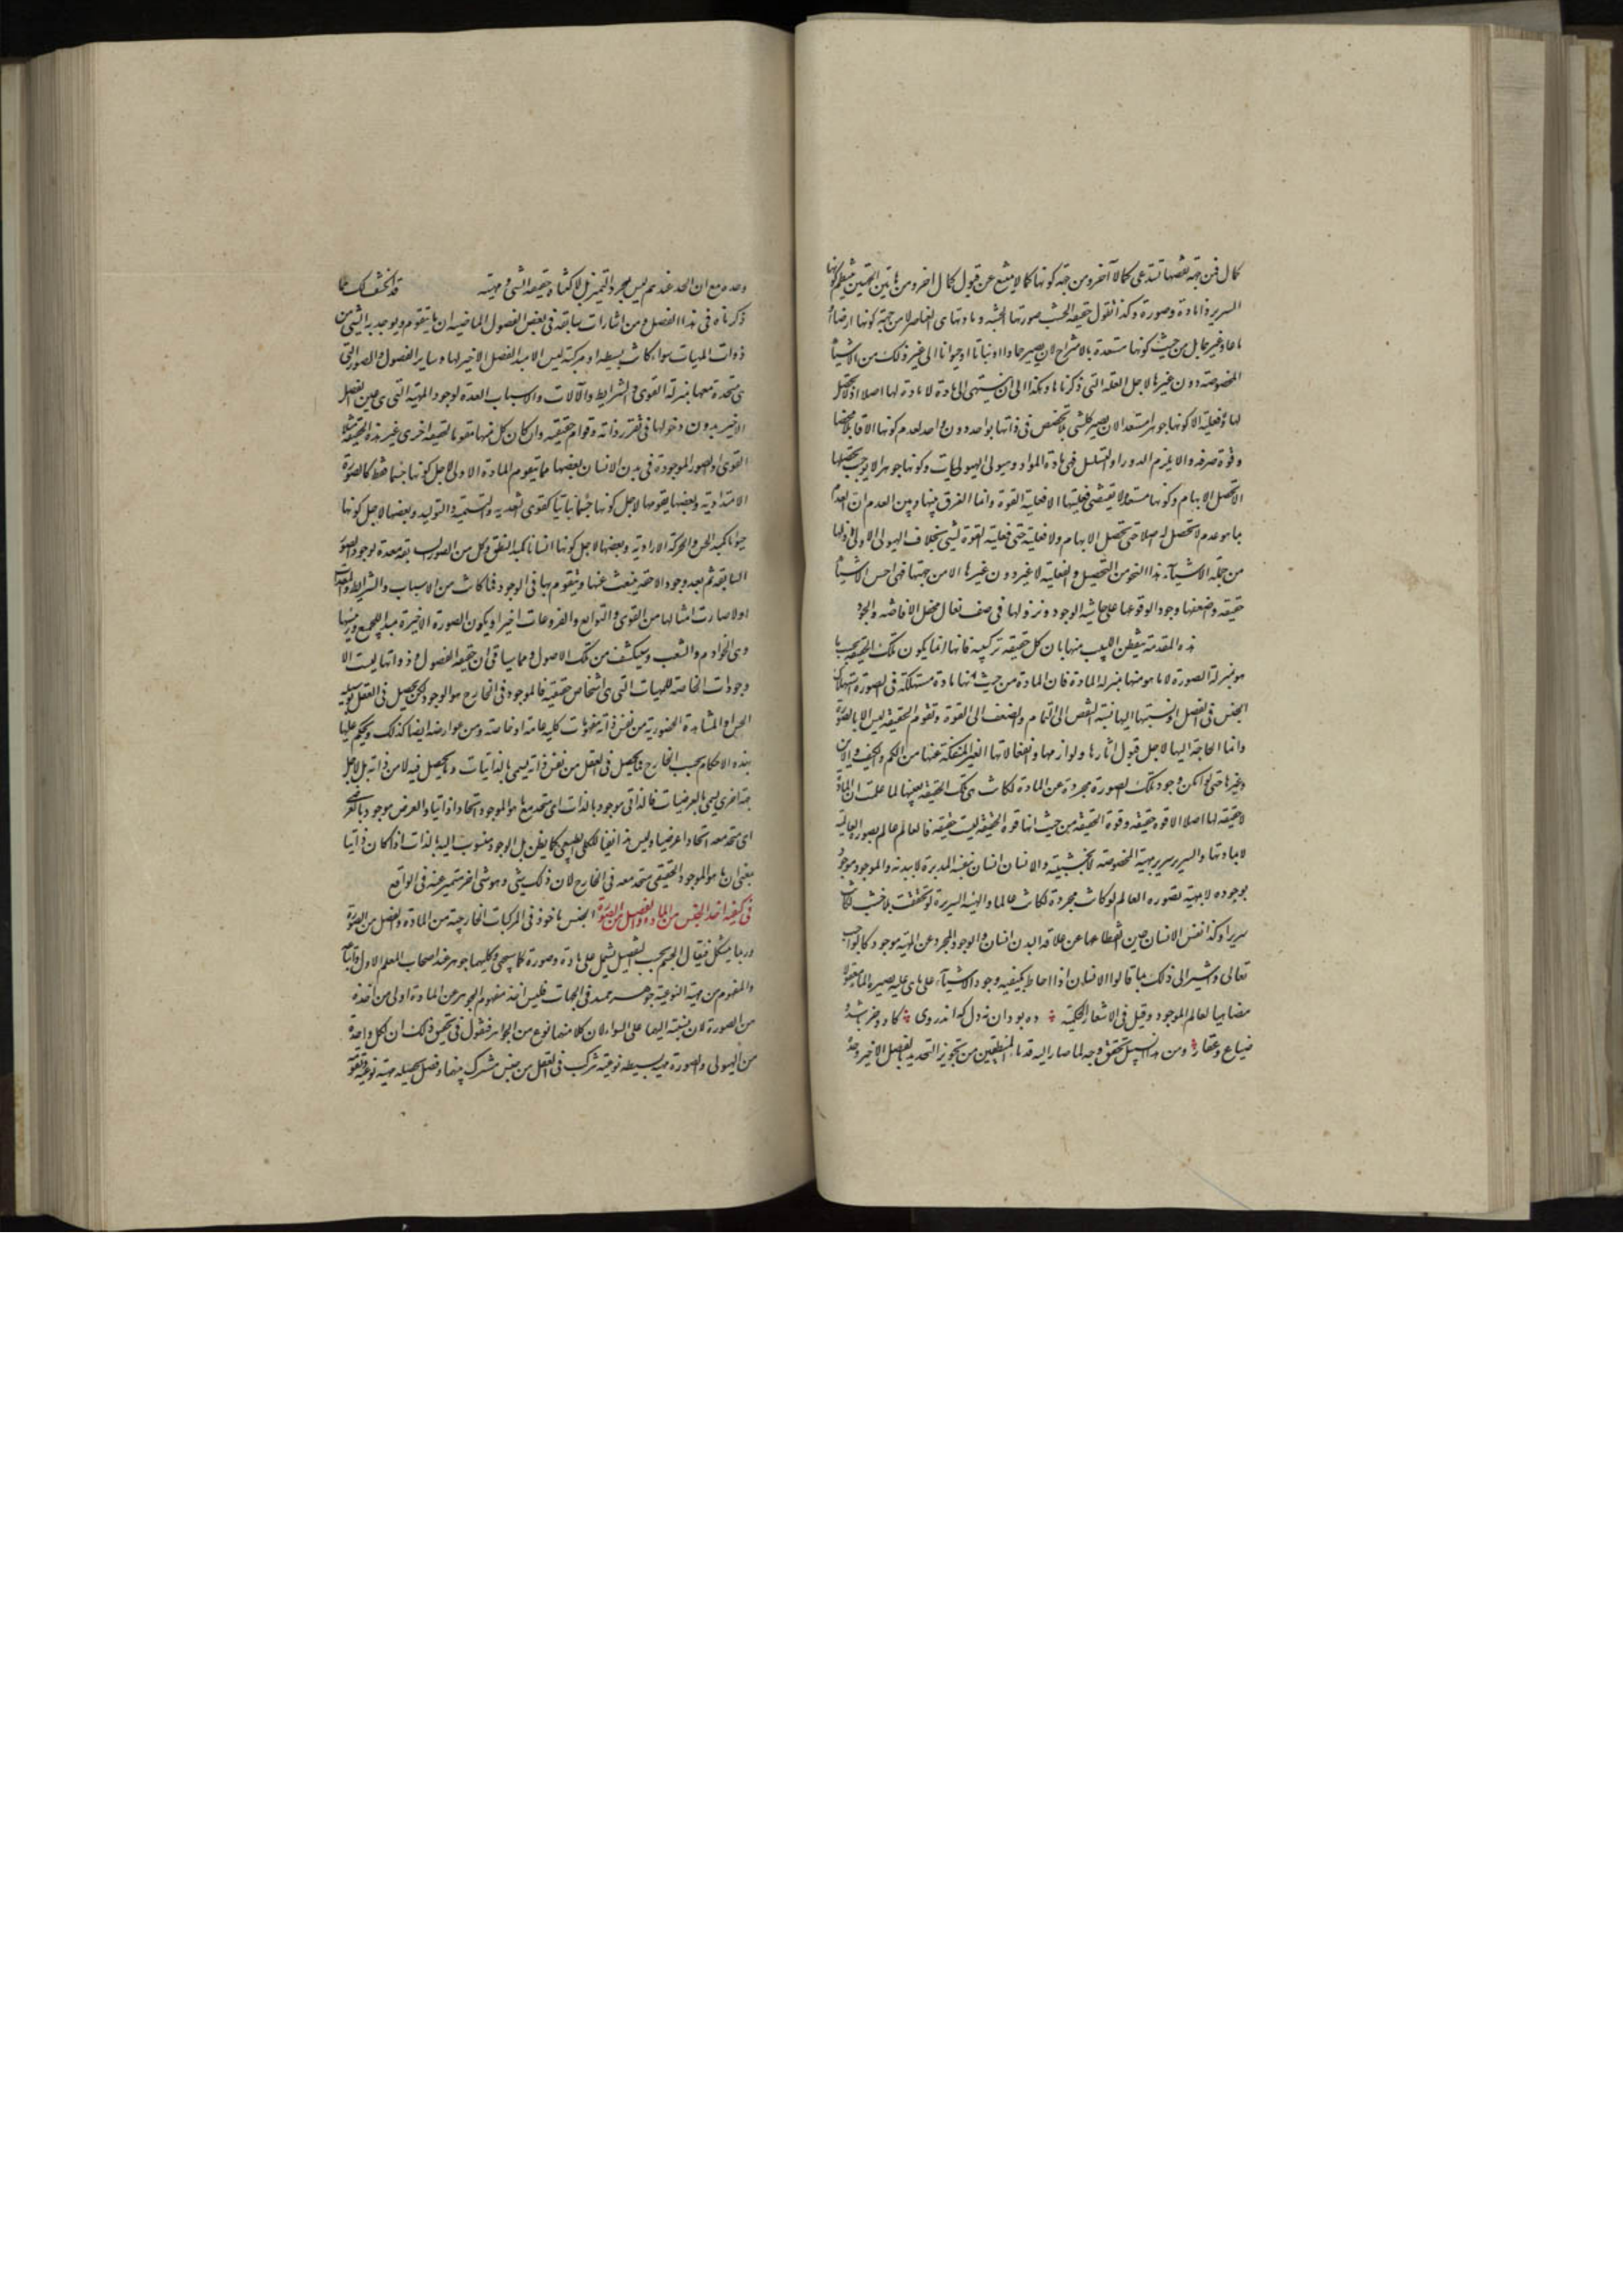 كمال فمن جهة نقصها تستدعى كمالا آخر ومن جهة كونها كمالا يمتنع عن قبول كمال اخر ومن هاتين الجهتين ينتظم كونها
السرير ذا مادة وصورة وكذا نقول حقيقة الخشب صورتها الخشبية ومادتها هى العناصر لا من جهة كونها ارضا او
ماء او غيرهما بل من حيث كونها مستعدة بالامتزاج لان يصير جمادا او نباتا او حيوانا الى غير ذلك من الاشياء
المخصوصة دون غيرها لاجل العلة التى ذكرناها وهكذا الى ان ينتهى الى مادة لا مادة لها اصلا اذ لا تحصل
لها و فعلية الا كونها جوهرا مستعدا لان يصير كل شى بلا تخصص فى ذاتها بواحد دون واحد لعدم كونها الا قابلا محضا
وقوة صرفة والا يلزم الدور او التسلسل فهى مادة المواد وهيولى الهيوليات وكونها جوهرا لا يوجب تحصلها
الا تحصل الابهام وكونها مستعدة لا يقتضى فعليتها الا فعلية القوة وانما الفرق بينها وبين العدم ان العدم
بما هو عدم لا تحصل له اصلا حتى تحصل الابهام ولا فعلية حتى فعلية القوة لشى بخلاف الهيولى الاولى اذ لها
من جملة الاشياء هذا النحو من التحصيل والفعلية لا غير دون غيرها الا من جهتها فهى اخس الاشياء
حقيقة واضعفها وجودا لوقوعها على حاشية الوجود ونزولها فى صف نعال محفل الافاضة والجود
هذه المقدمة يتفطن اللبيب منها بان كل حقيقة تركيبية فانها انما يكون تلك الحقيقة بحسب ما
هو بمنزلة الصورة لا ما هو منها بمنزلة المادة فان المادة من حيث انها مادة مستهلكة فى الصورة استهلاك
الجنس فى الفصل اذ نسبتها اليها نسبة النقص الى التمام والضعف الى القوة وتقوم الحقيقة ليس الا بالصورة
وانما الحاجة اليها لاجل قبول اثارها ولوازمها وانفعالاتها الغير المنفكة عنها من الكم والكيف والاين
وغيرها حتى لو امكن وجود تلك الصورة مجردة عن المادة لكانت هى تلك الحقيقة بعينها لما علمت ان المادة
لا حقيقة لها اصلا الا قوة حقيقة وقوة الحقيقة من حيث انها قوة الحقيقة ليست حقيقة فالعالم عالم بصورته العالمية
لا بمادتها والسرير سرير بهيئته المخصوصة لا بخشبيته والانسان انسان بنفسه المدبرة لا ببدنه والموجود موجود
بوجوده لا بمهيته فصورة العالم لو كانت مجردة لكانت عالما والهيئة السريرية لو تحققت بلا خشب لكانت
سريرا وكذا نفس الانسان حين انقطاعها عن علاقة البدن انسان والوجود المجرد عن المهية موجود كالواجب
تعالى واشير الى ذلك بما قالوا الانسان اذا احاط بكيفية وجود الاشياء على ما هى عليه يصير عالما معقولا
مضاهيا لعالم الموجود وقيل فى الاشعار الحكمية ده بود آن نه دل كه اندر وى گاو و خر باشد و
ضياع و عقار ومن هذا السبيل تحقق وجه لما صار اليه قدماء المنطقيين من تجويز التحديد بالفصل الاخير وحده
وحده مع ان الحد عندهم ليس مجرد التميز بل لاكتناه حقيقة الشى ومهيته قد انكشف لك مما
ذكرناه فى هذا الفصل ومن اشارات سابقة فى بعض الفصول الماضية ان ما يتقوم ويوجد به الشى من
ذوات المهيات سواء كانت بسيطة او مركبة ليس الا مبدا الفصل الاخير لها وساير الفصول والصور التى
هى متحدة معها بمنزلة القوى والشرايط والآلات والاسباب المعدة لوجود المهية التى هى عين الفصل
الاخير بدون دخولها فى تقرر ذاته وقوام حقيقته وان كان كل منها مقوما لحقيقة اخرى غير هذه الحقيقة مثلا
القوى والصور الموجودة فى بدن الانسان بعضها مما يتقوم المادة الاولى لاجل كونها جسما فقط كالصورة
الامتدادية وبعضها يقومها لاجل كونها جسما نباتيا كقوى التغذية والتنمية والتوليد وبعضها لاجل كونها
حيوانا كمبدا الحس والحركة الارادية وبعضها لاجل كونها انسانا كمبدا النطق وكل من الصور السابقة معدة لوجود الصور
السابقة ثم بعد وجود اللاحقة ينبعث عنها ويتقوم بها فى الوجود فما كانت من الاسباب والشرايط والمعدات
اولا صارت امثالها من القوى والتوابع والفروعات اخيرا ويكون الصورة الاخيرة مبدا للجميع ورئيسها
وهى الخوادم والشعب وسينكشف من تلك الاصول ومما سياتى ان حقيقة الفصول وذواتها ليست الا
وجودات الخاصة للمهيات التى هى اشخاص حقيقية فالموجود فى الخارج هو الوجود لكن يحصل فى العقل بوسيلة
الحس او المشاهدة الحضورية من نفس ذاته مفهومات كلية عامة او خاصة ومن عوارضه ايضا كذلك ويحكم عليها
بهذه الاحكام بحسب الخارج فما يحصل فى العقل من نفس ذاته يسمى بالذاتيات وما يحصل فيه لا من ذاته بل لاجل
جهة اخرى يسمى بالعرضيات فالذاتى موجود بالذات اى متحد مع ما هو الموجود اتحادا ذاتيا والعرض موجود بالعرض
اى متحد معه اتحادا عرضيا وليس هذا نفيا للكلى الطبيعى كما يظن بل الوجود منسوب اليه بالذات اذا كان ذاتيا
بمعنى ان ما هو الموجود الحقيقى متحد معه فى الخارج لا ان ذلك شى وهو شى اخر متميز عنه فى الواقع
فى كيفية اخذ الجنس من المادة والفصل من الصورة الجنس ماخوذ فى المركبات الخارجية من المادة والفصل من الصورة
وربما يشكل فيقال الجسم بحسب التفصيل يشمل على مادة وصورة كما سيجى وكليهما جوهر عند اصحاب المعلم الاول واتباعه
والمفهوم من مهيته النوعية جوهر ممتد فى الجهات فليس اخذ مفهوم الجوهر عن المادة اولى من اخذه
من الصورة لان نسبته اليهما على السواء لان كلا منهما نوع من الجواهر فنقول فى تحقيق ذلك ان لكل واحدة
من الهيولى والصورة مهية بسيطة نوعية تركب فى العقل من جنس مشترك بينهما وفصل يحصله مهية نوعية ويقومه